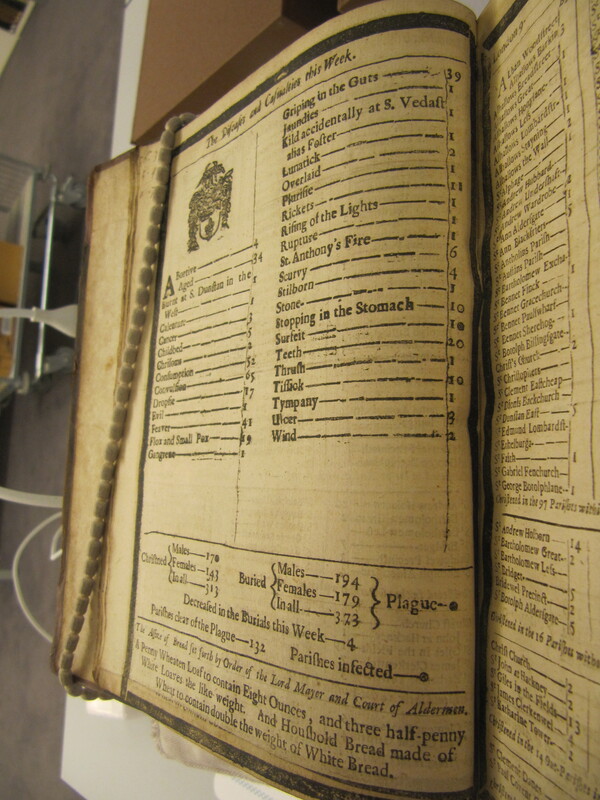 The Diseases and Casualties this Week.
Abortive 4
Aged 34
Burnt at S. Dunstan in the West 1
Calenture 1
Cancer 3
Childbed 5
Chrisoms 2
Consumption 52
Convulsion 65
Dropsie 17
Evil 1
Feaver 41
Flox and Small Pox 19
Gangrene 1
Griping in the Guts 39
Jaundies 1
Kild accidentally at S. Vedast
alias Foster 1
Lunatick 1
Overlaid 2
Plurisie 1
Rickets 11
Rising of the Lights 1
Rupture 1
St. Anthony's Fire 1
Scurvy 6
Stilborn 4
Stone 1
Stopping in the Stomach 10
Surfeit 10
Teeth 20
Thrush 1
Tissick 10
Tympany 1
Ulcer 3
Wind 2
Christned
Males 170
Females 143
In all 313
Buried
Males 194
Females 179
In all 373
Plague 0
Decreased in the Burials this Week 4
Parishes clear of the Plague 132 Parishes infected 0
The Assise of Bread set forth by Order of the Lord Mayor and Court of Aldermen.
A Penny Wheaten Loaf to contain Eight Ounces, and three half-penny
White Loaves the like weight. And Houshold Bread made of
Wheat to contain double the weight of White Bread.
St Andrew Hubbard
St Ann Aldersgate
St Ann Blackfriers
St Bennet Finck
St Bennet Gracechurch
Christ's Church
St Christophers
St Clement Eastcheap
St Dionis Backchurch
St Dunstan East
St Edmund Lombardst-
St Ethelburga
St Faith
St Gabriel Fenchurch
St George Botolphlane
Christned in the 97 Parishes
St Andrew Holborn 14
St Bartholomew Great 2
St Bartholomew Less
St Bridget 5
Bridewel Precinct
St Botolph Aldersgate 5
Christned in the 16 Parishes
Christ Church
St John at Hackney
St Giles in the Fields
St James Clerkenwel
St Katharine Tower